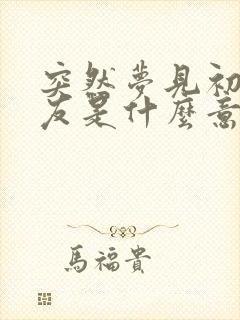 突然夢見初
友是什麼意
馬福貴